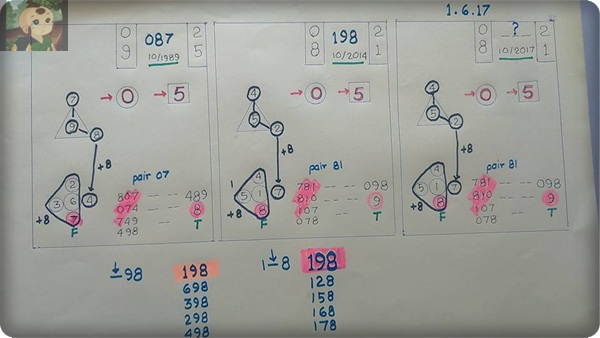 1.6.17
0 087 2
9 10/1989 5
→ 0 → 5
7
9
8
+8
pair 07
2
3 6 4
7
+8
F
867 -- -- 489
074 -- -- 8
749 -- -- T
498
0 198 2
8 10/2014 1
→ 0 → 5
4
5
2
+8
pair 81
1
4
5 1 7
8
+8
F
781 -- -- 098
810 -- -- 9
107 -- -- T
078
0 _ ? _ 2
8 10/2017 1
→ 0 → 5
4
5
2
+8
pair 81
4
5 1 7
8
+8
F
781 -- -- 098
810 -- -- 9
107 -- -- T
078
98 198
698
398
298
498
1 8 198
128
158
168
178